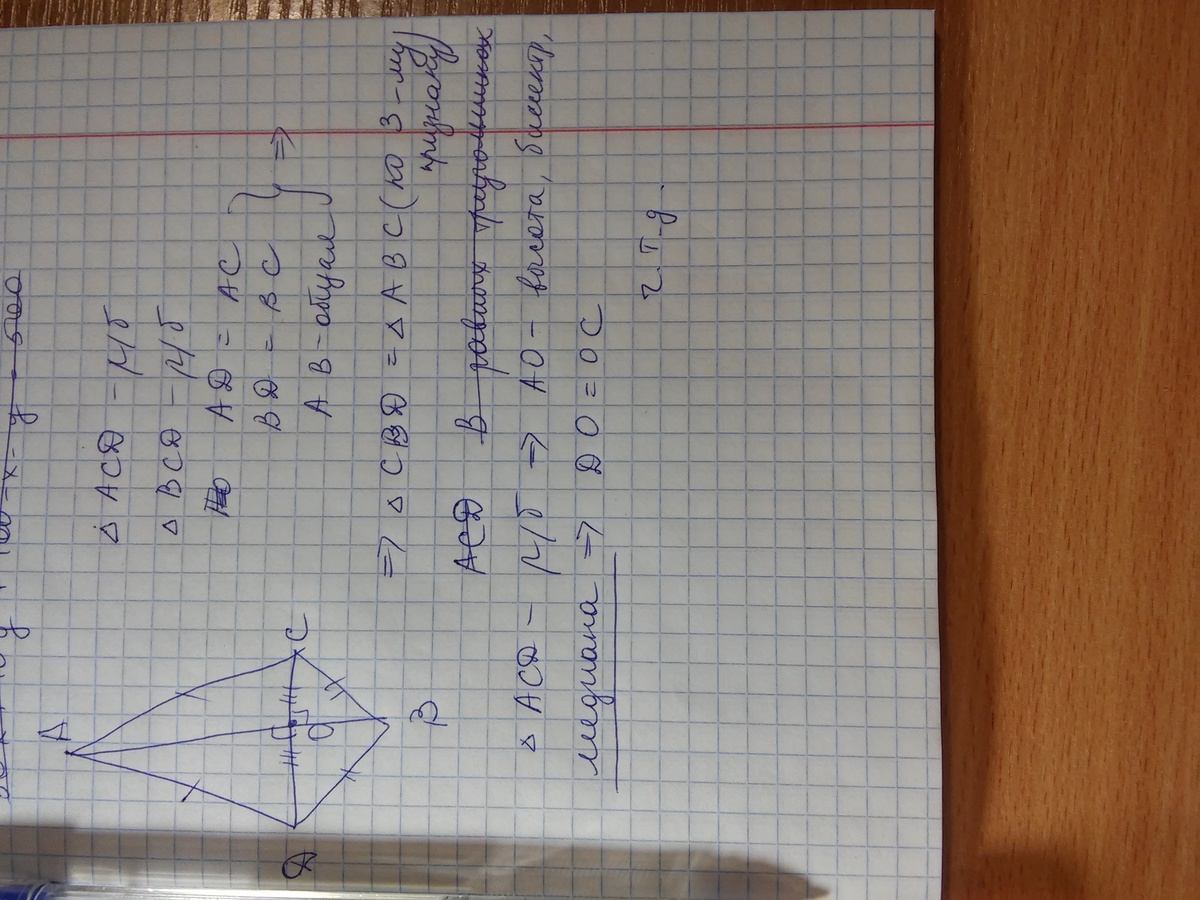 △ ACD - р/б
△ BCD - р/б
AD = AC
BD = BC } =>
AB - общая
=> △ CBD = △ ABC (по 3-му признаку)
ACD В равных треугольниках
△ ACD - р/б => AO - высота, биссектр,
медиана => DO = OC
ч.т.д.
A
D
C
O
B